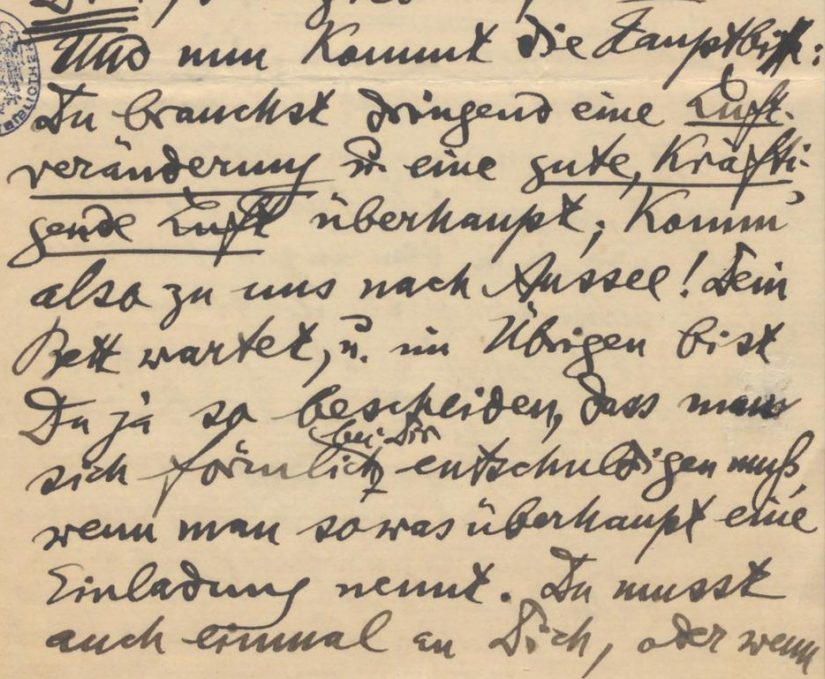 Und nun kommt die Hauptbitte:
Du brauchst dringend eine Luft-
veränderung u. eine gute, kräfti-
gende Luft überhaupt; komm'
also zu uns nach Aussee! Dein
Bett wartet, u. im Übrigen bist
Du ja so bescheiden, dass man
sich förmlich bei Dir entschuldigen muß,
wenn man sowas überhaupt eine
Einladung nennt. Du musst
auch einmal an Dich, oder wenn